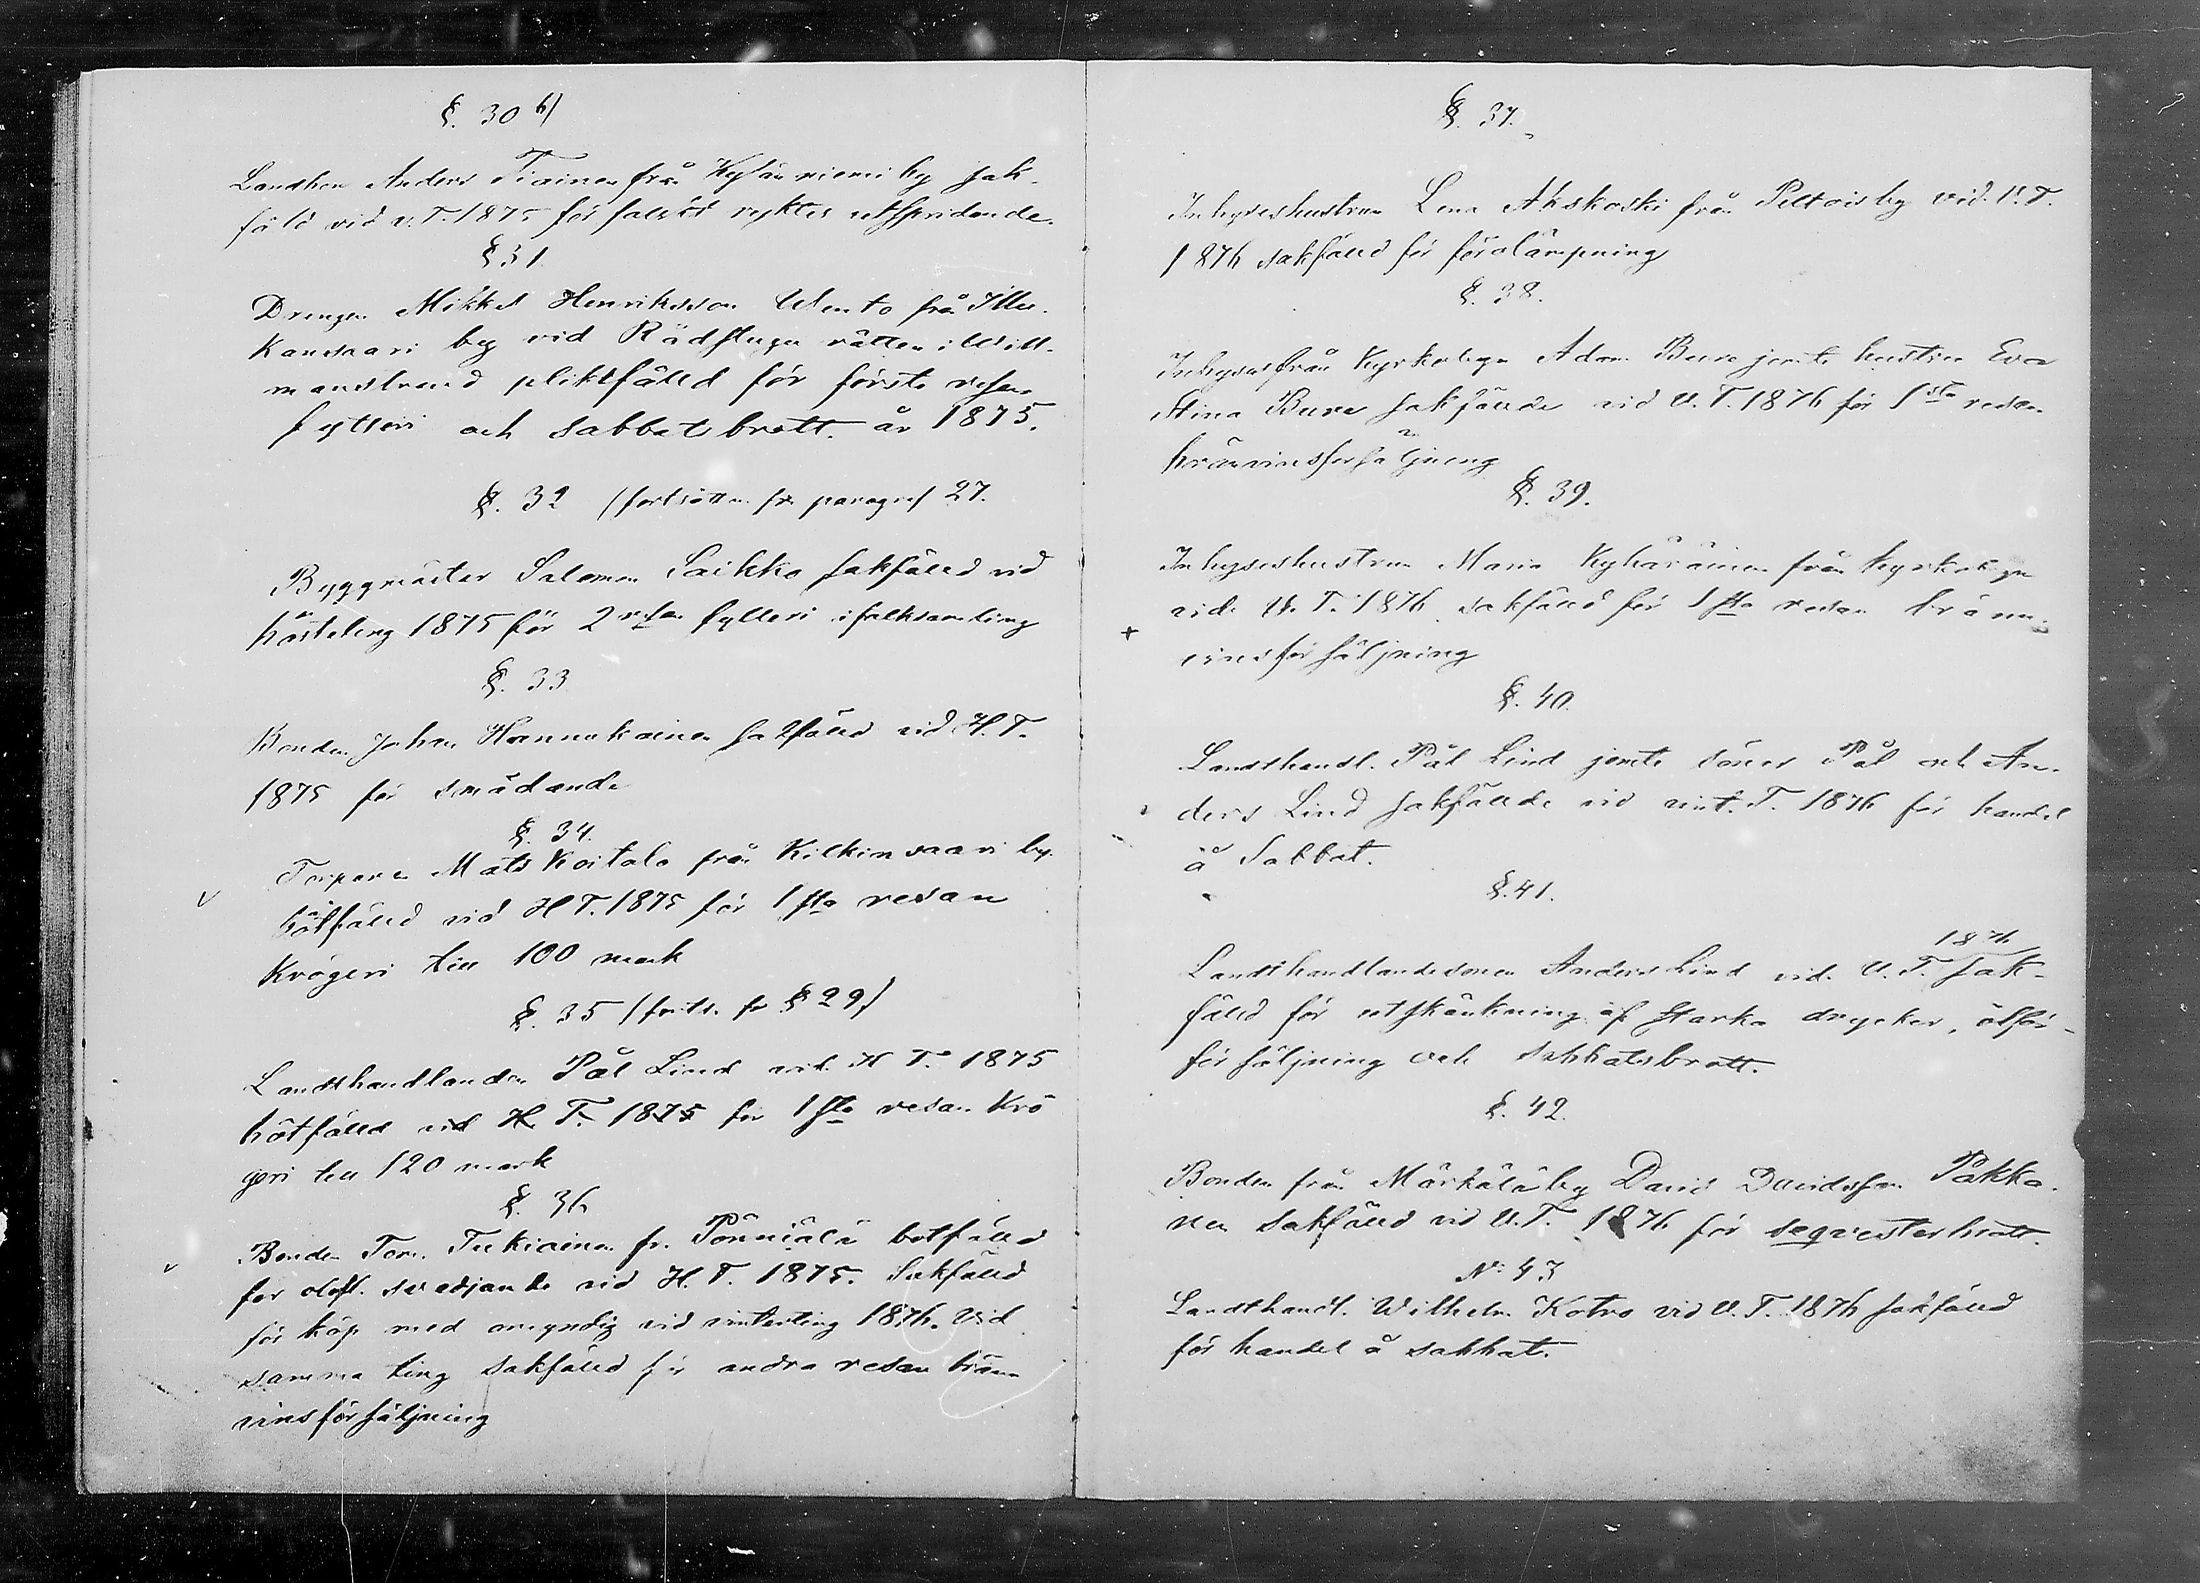 §. 30 b)
Landbon Anders Tiainen från Kylänniemi by sak-
fäld vid v. T. 1875 för falskt ryktes utspridande.
§ 31.
Drengen Mikkel Henriksson Wento från Illu-
kansaari by vid Rådstugu rätten i Will-
manstrand pliktfälld för första resan
fylleri och sabbatsbrott år 1875.
§. 32 (fortsättn. fr. paragraf 27.
Byggmäster Salomon Saikko sakfälld vid
hösteting 1875 för 2 resan fylleri i folksamling
§. 33
Bonden Johan Hannukainen sakfälld vid H. T.
1875 för smädande
§. 34.
Torparen Mats Koitalo från Kilkinsaari by.
bötfälld vid H T. 1875 för 1sta resan
Krögeri till 100 mark
§. 35 (forts. fr § 29)
Landthandlanden Pål Lind vid H T. 1875
bötfälld vid H. T. 1875 för 1sta resan Krö
geri till 120 mark
§. 36
Bonden Tom. Tukiainen fr. Pönniälä botfälld
för olofl. svedjande vid H. T. 1875. Sakfälld
för köp med omyndig vid vinterting 1876. Vid
samma ting sakfälld för andra resan bränn
vinsförsäljning
§. 37.
Inhyseshustrun Lena Akskoski från Peltoisby vid V. T.
1876 sakfälld för förolämpning
§. 38.
Inhyses från Kyrkobyn Adam Bure jemte hustru Eva
Stina Bure sakfällde vid V. T. 1876 för 1sta resan
brännvinsförsäljning
§. 39.
Inhyseshustrun Maria Kyhäräinen från Kyrkobyn
vid V. T. 1876 sakfälld för 1sta resan bränn-
vinsförsäljning
§. 40.
Landthandl. Pål Lind jemte söner Pål och An-
ders Lind sakfällde vid vint. T. 1876 för handel
å Sabbat.
§. 41.
1876
Landthandlandesonen Anders Lind vid V. T. sak-
fälld för utskänkning af starka drycker, ölför-
försäljning och sabbatsbrott.
§. 42.
Bonden från Märkälä by David Davidsson Pakka-
nen sakfälld vid V. T. 1876 för seqvesterbrott.
No 43
Landthandl. Wilhelm Kotro vid V. T. 1876 sakfälld
för handel å sabbat.